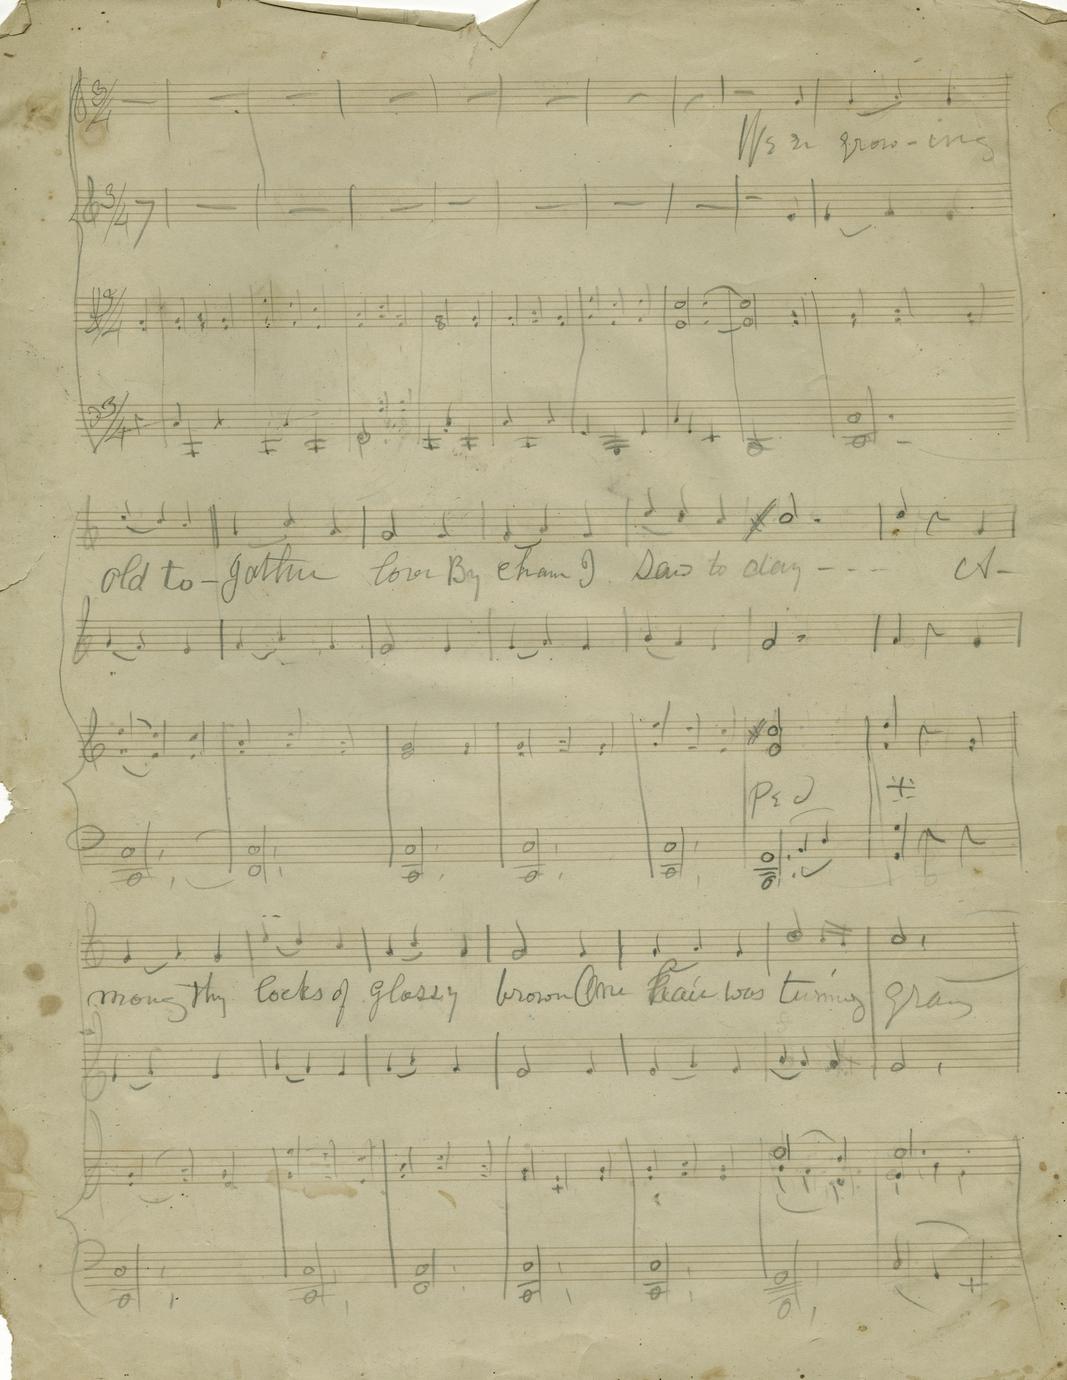 We're grow-ing
old to-gether love By chance I saw to day --- A-
Ped
mong thy locks of glossy brown One hair was turning gray